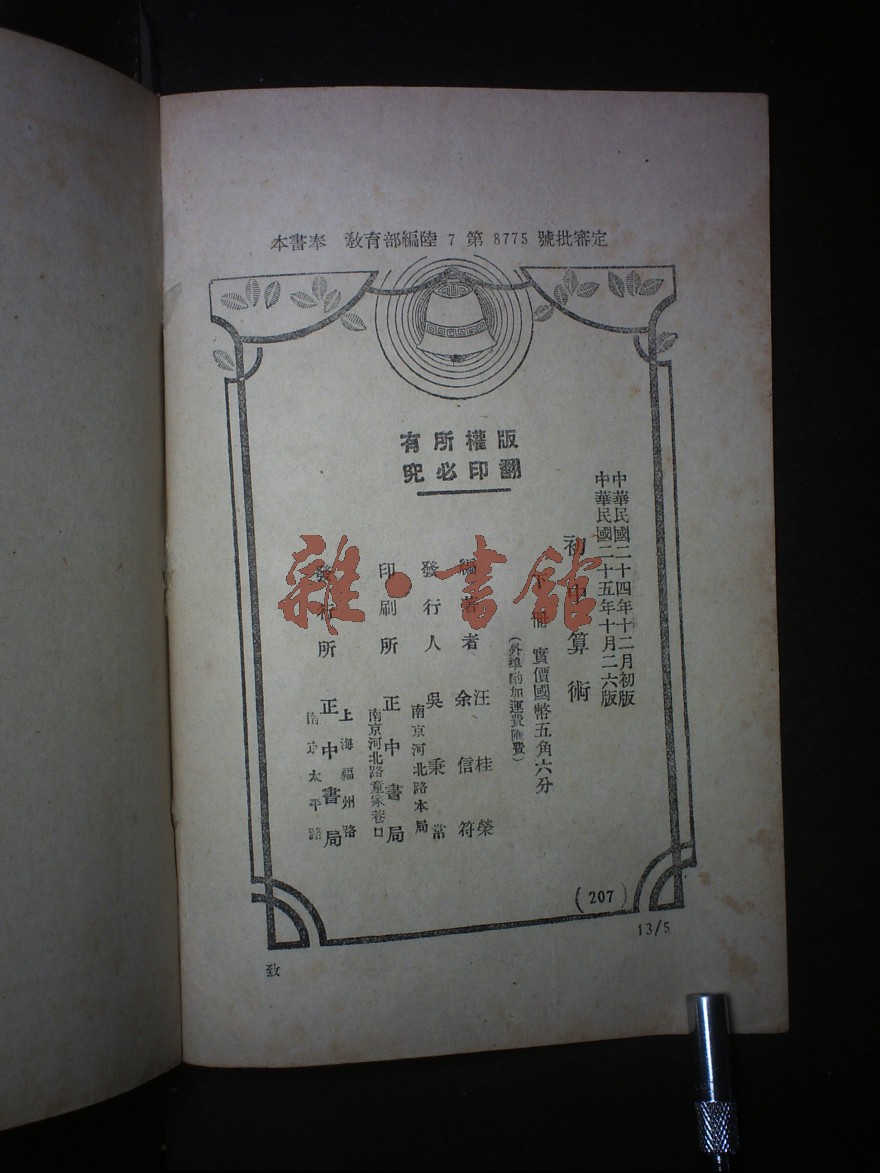 本書奉 教育部編陸 7 第 8775 號批審定
版權所有
翻印必究
中華民國二十四年十二月初版
中華民國二十五年十月二六版
初中算術
下冊 實價國幣五角六分
(外埠酌加運費匯費)
編著者 汪桂榮
余信符
發行人 吳秉常
南京河北路本局
印刷所 正中書局
南京河北路童家巷口
發行所 正中書局
上海福州路
南京太平路
(207)
13/5
致
雜·書館